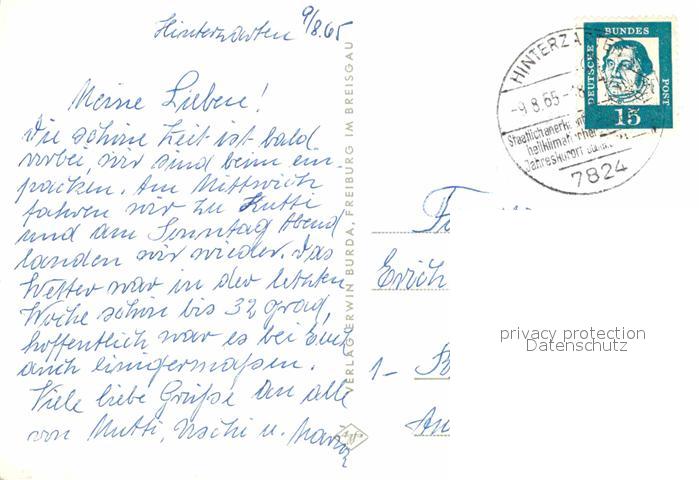 Hinterzarten 9/8.65
Meine Lieben!
Die schöne Zeit ist bald
vorbei, wir sind beim ein-
packen. Am Mittwoch
fahren wir zu Mutti
und am Sonntag Abend
landen wir wieder. Das
Wetter war in der letzten
Woche schön bis 32 grad,
hoffentlich war es bei Euch
auch einigermaßen.
Viele liebe Grüße an alle
von Mutti, Uschi u.
VERLAG ERWIN BURDA, FREIBURG IM BREISGAU
HINTERZARTEN
-9.8.65-18
Staatlich anerk.
heilklimatischer
Jahreskurort
7824
DEUTSCHE BUNDES POST
15
Erich
privacy protection
Datenschutz
1-